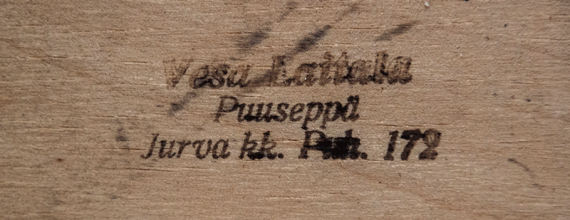 Vesa Laitala
Puuseppä
Jurva kk. Puh. 172